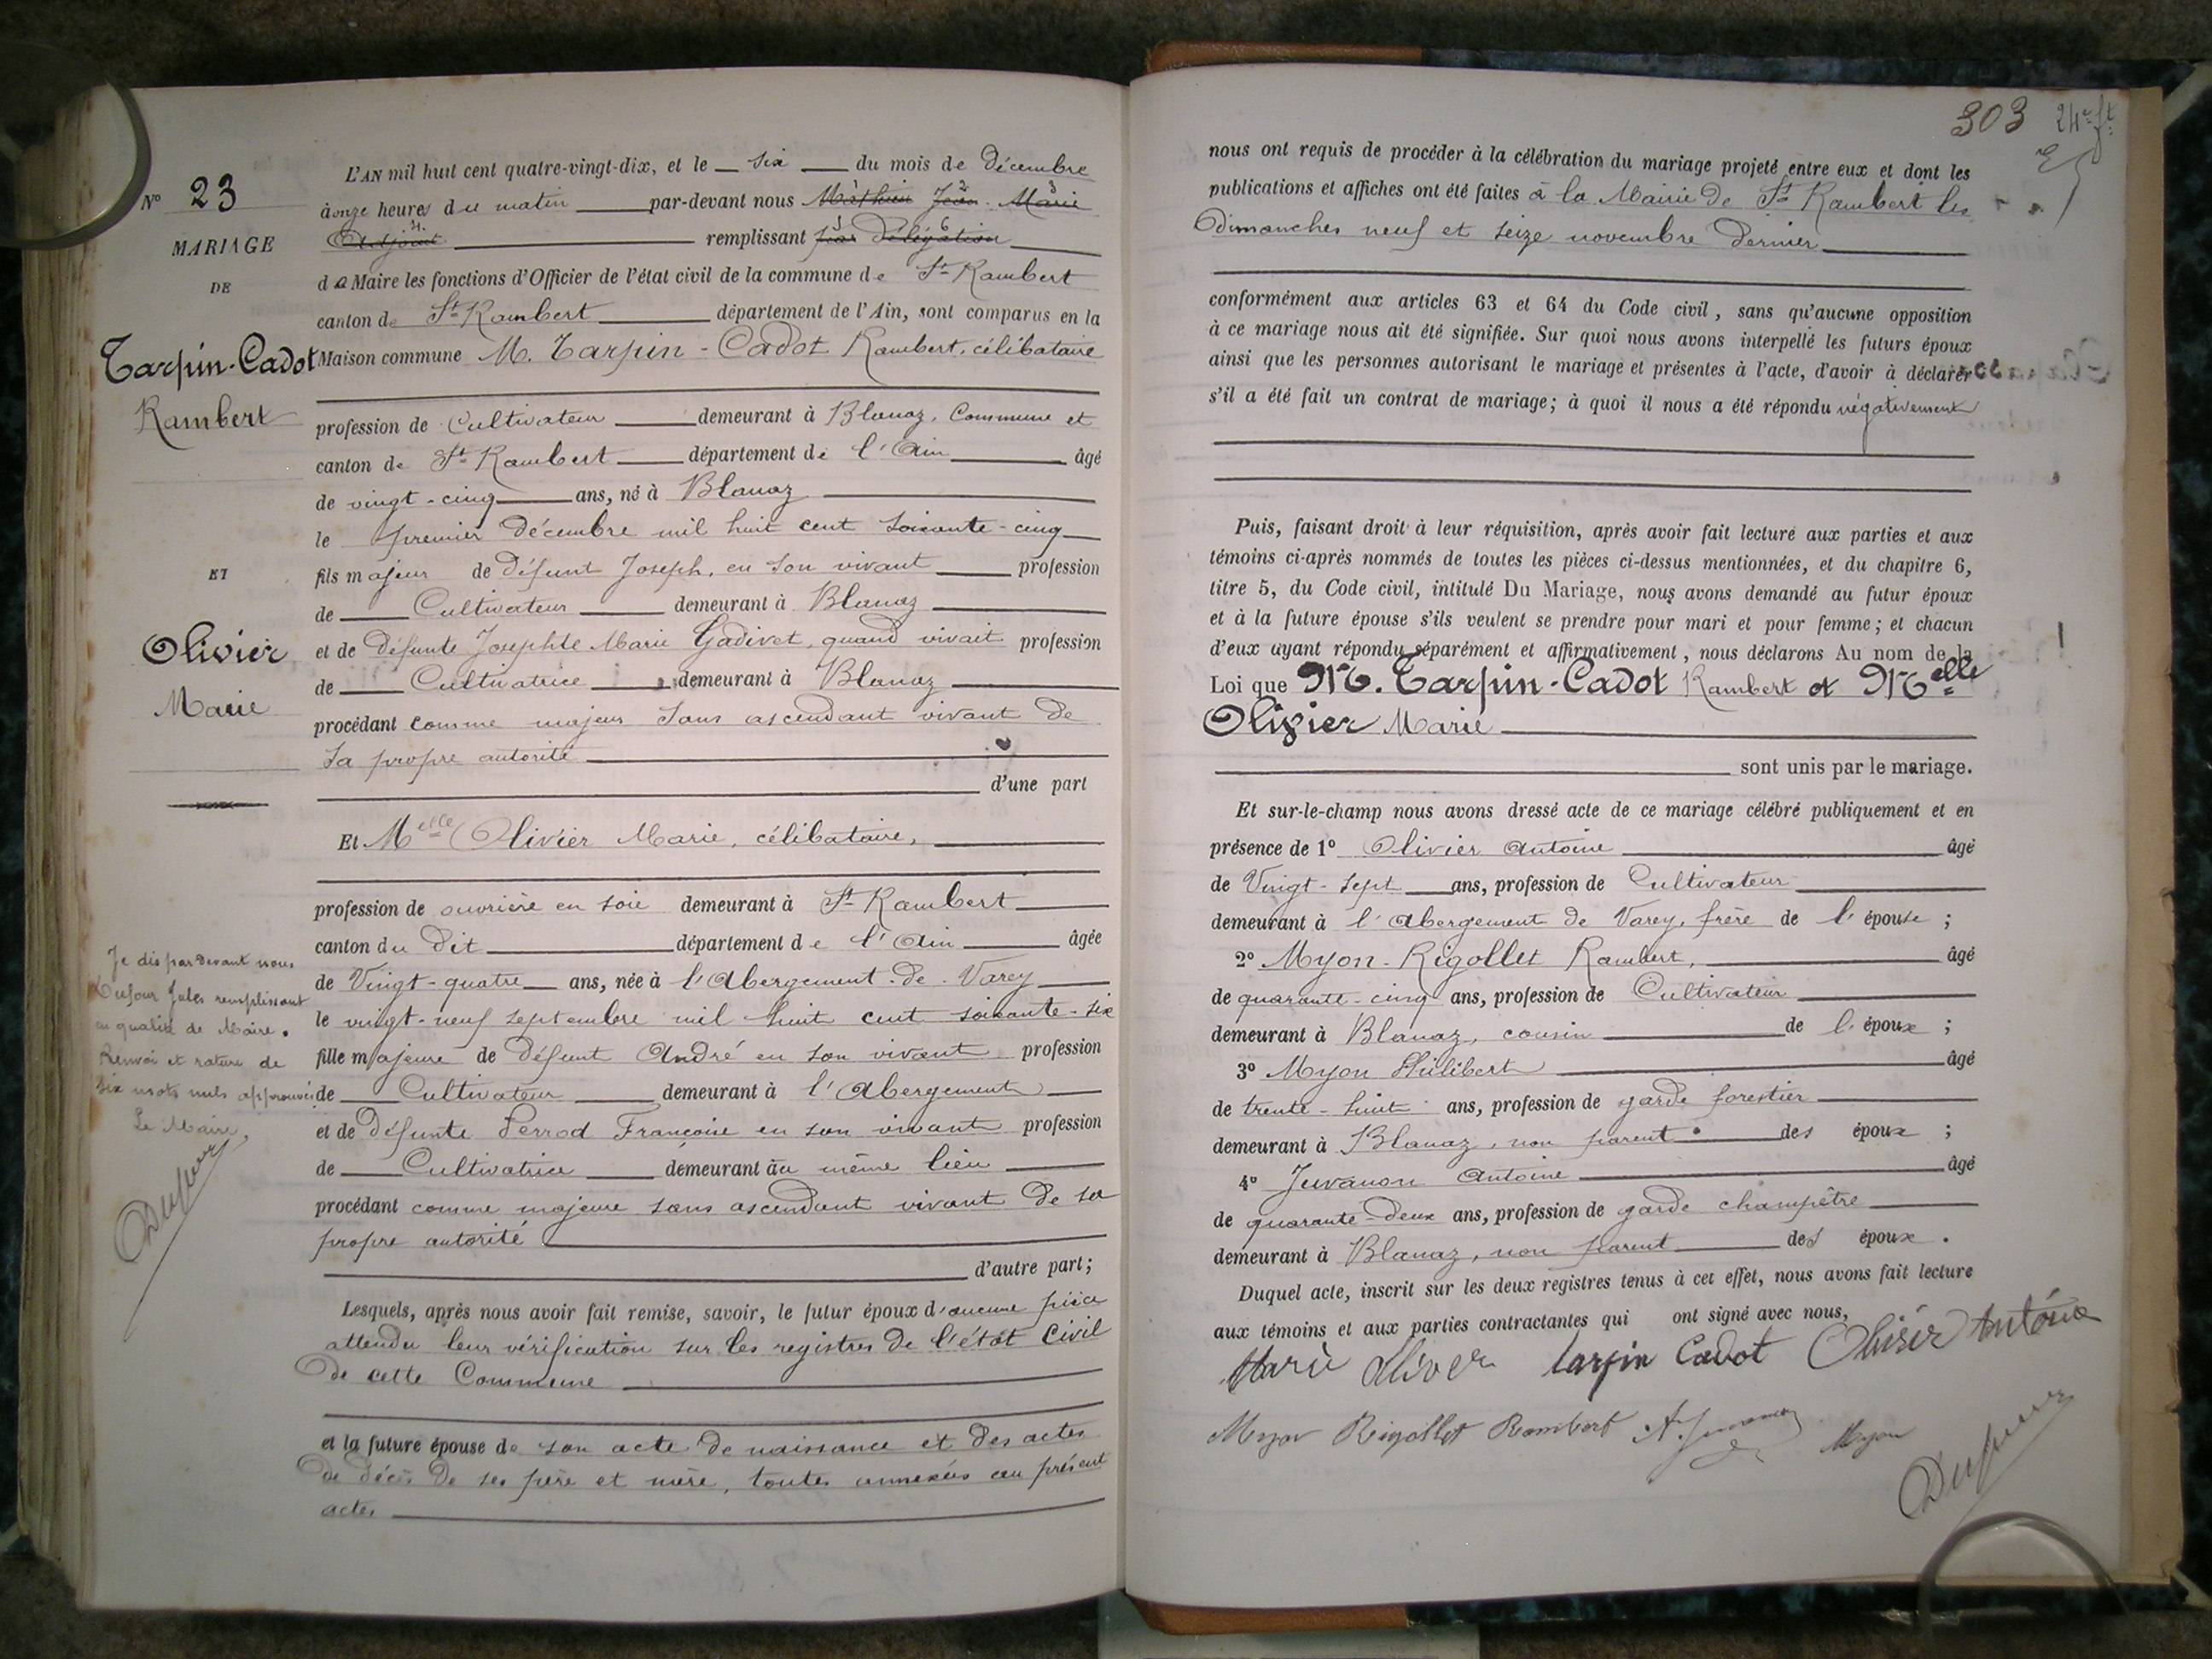 N° 23
MARIAGE
DE
Tarpin-Cadot
Rambert
ET
Olivier
Marie
Je dis par devant nous
Dufour Jules remplissant
en qualité de Maire.
Renvoi et rature de
six mots nuls approuvés
Le Maire,
Dufour
L'AN mil huit cent quatre-vingt-dix, et le six du mois de décembre
à onze heures du matin par-devant nous Mathieu Jean-Marie
Adjoint remplissant par délégation
de Maire les fonctions d'Officier de l'état civil de la commune de St Rambert
canton de St Rambert département de l'Ain, sont comparus en la
Maison commune M. Tarpin-Cadot Rambert, célibataire
profession de Cultivateur demeurant à Blanaz, Commune et
canton de St Rambert département de l'Ain âgé
de vingt-cinq ans, né à Blanaz
le premier décembre mil huit cent soixante-cinq
fils majeur de défunt Joseph, en son vivant profession
de Cultivateur demeurant à Blanaz
et de défunte Josephte Marie Gadivet, quand vivait profession
de Cultivatrice demeurant à Blanaz
procédant comme majeur sans ascendant vivant de
sa propre autorité
d'une part
Et Melle Olivier Marie, célibataire,
profession de ouvrière en soie demeurant à St Rambert
canton du dit département de l'Ain âgée
de Vingt-quatre ans, née à l'Abergement-de-Varey
le vingt-neuf septembre mil huit cent soixante-six
fille majeure de défunt André en son vivant profession
de Cultivateur demeurant à l'Abergement
et de défunte Perrod Françoise en son vivant profession
de Cultivatrice demeurant au même lieu
procédant comme majeure sans ascendant vivant de sa
propre autorité
d'autre part;
Lesquels, après nous avoir fait remise, savoir, le futur époux d'aucune pièce
attendu leur vérification sur les registres de l'état civil
de cette Commune
et la future épouse de son acte de naissance et des actes
de décès de ses père et mère, toutes annexées au présent
actes
303 24e ft
nous ont requis de procéder à la célébration du mariage projeté entre eux et dont les
publications et affiches ont été faites à la Mairie de St Rambert les
Dimanches neuf et seize novembre dernier
conformément aux articles 63 et 64 du Code civil, sans qu'aucune opposition
à ce mariage nous ait été signifiée. Sur quoi nous avons interpellé les futurs époux
ainsi que les personnes autorisant le mariage et présentes à l'acte, d'avoir à déclarer
s'il a été fait un contrat de mariage; à quoi il nous a été répondu négativement
Puis, faisant droit à leur réquisition, après avoir fait lecture aux parties et aux
témoins ci-après nommés de toutes les pièces ci-dessus mentionnées, et du chapitre 6,
titre 5, du Code civil, intitulé Du Mariage, nous avons demandé au futur époux
et à la future épouse s'ils veulent se prendre pour mari et pour femme; et chacun
d'eux ayant répondu séparément et affirmativement, nous déclarons Au nom de la
Loi que M. Tarpin-Cadot Rambert et Melle
Olivier Marie
sont unis par le mariage.
Et sur-le-champ nous avons dressé acte de ce mariage célébré publiquement et en
présence de 1° Olivier Antoine âgé
de Vingt-sept ans, profession de Cultivateur
demeurant à l'Abergement de Varey, frère de l'épouse;
2° Myon-Rigollet Rambert, âgé
de quarante-cinq ans, profession de Cultivateur
demeurant à Blanaz, cousin de l'époux;
3° Myon Philibert âgé
de trente-huit ans, profession de garde forestier
demeurant à Blanaz, non parent des époux;
4° Juvanon Antoine âgé
de quarante-deux ans, profession de garde champêtre
demeurant à Blanaz, non parent des époux.
Duquel acte, inscrit sur les deux registres tenus à cet effet, nous avons fait lecture
aux témoins et aux parties contractantes qui ont signé avec nous,
Marie Oliver Tarpin Cadot Olivier Antoine
Myon Rigollet Rambert A. Juvanon Myon
Dufour